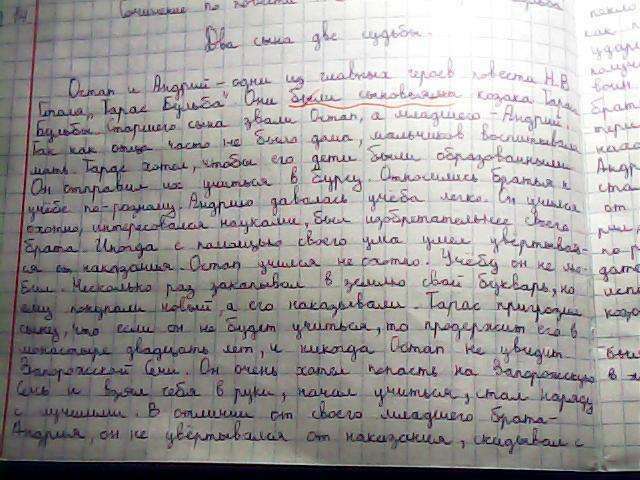 Сочинение по повести
Два сына две судьбы.
Остап и Андрий – одни из главных героев повести Н.В.
Гоголя „Тарас Бульба“. Они были сыновьями козака Тараса
Бульбы. Старшего сына звали Остап, а младшего – Андрий.
Так как отца часто не было дома, мальчиков воспитывала
мать. Тарас хотел, чтобы его дети были образованными.
Он отправил их учиться в бурсу. Относились братья к
учёбе по-разному. Андрию давалась учёба легко. Он учился
охотно, интересовался науками, был изобретательнее своего
брата. Иногда с помощью своего ума умел увёртывать-
ся от наказания. Остап учился не охотно. Учёбу он не лю-
бил. Несколько раз закапывал в землю свой букварь, но
ему покупали новый, а его наказывали. Тарас пригрозил
сыну, что если он не будет учиться, то продержит его в
монастыре двадцать лет, и никогда Остап не увидит
Запорожской Сечи. Он очень хотел попасть на Запорожскую
Сечь и взял себя в руки, начал учиться, стал наряду
с лучшими. В отличии от своего младшего брата-
Андрия, он не увёртывался от наказания, скидывал с